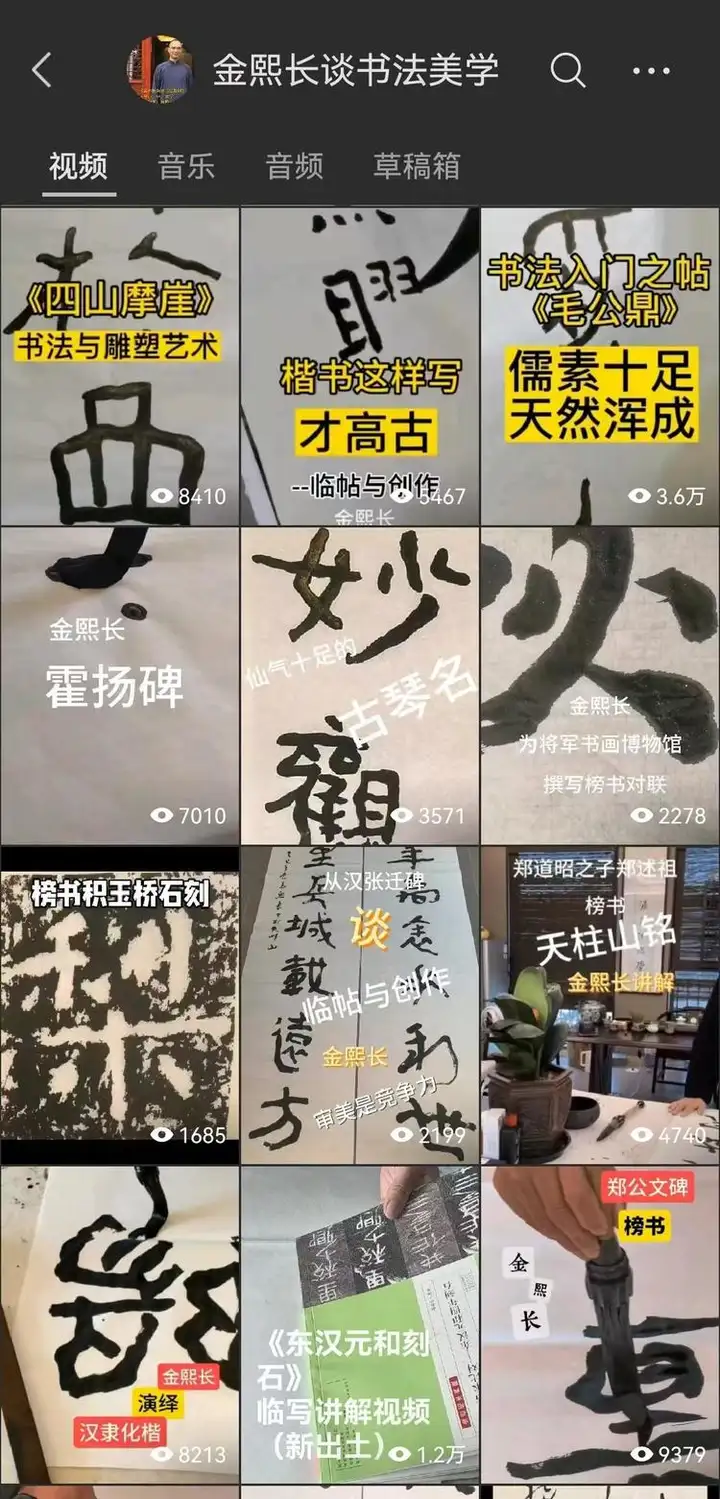 金熙长谈书法美学
视频 音乐 音频 草稿箱
《四山摩崖》
书法与雕塑艺术
8410
楷书这样写
才高古
--临帖与创作
金熙长
5467
书法入门之帖
《毛公鼎》
儒素十足
天然浑成
3.6万
金熙长
霍扬碑
7010
妙
仙气十足的
古琴名
觀
3571
金熙长
为将军书画博物馆
撰写榜书对联
2278
榜书积玉桥石刻
1685
从汉张迁碑
谈
临帖与创作
金熙长
审美是竞争力
2199
郑道昭之子郑述祖
榜书
天柱山铭
金熙长讲解
4740
金熙长
演绎
汉隶化楷
8213
《东汉元和刻
石》
临写讲解视频
（新出土）
1.2万
郑公文碑
榜书
金
熙
长
9379